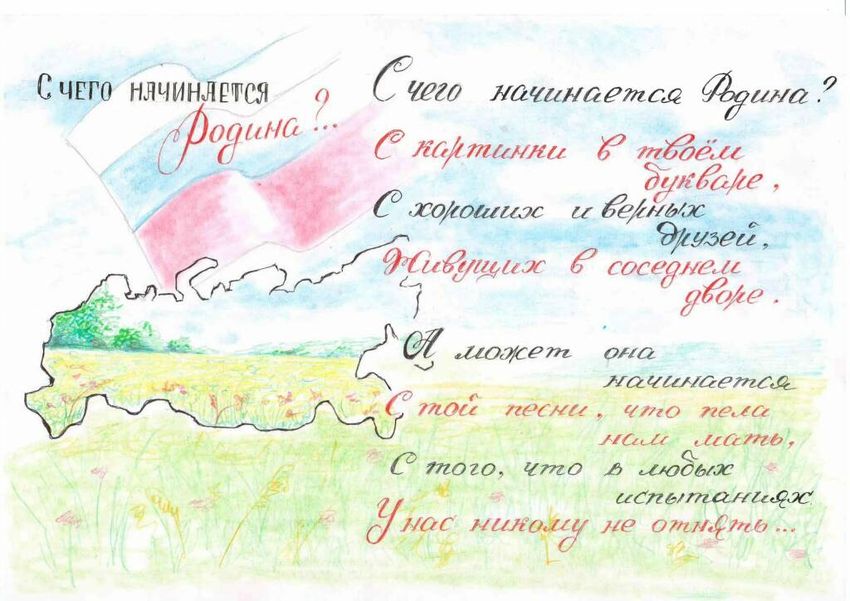 С ЧЕГО НАЧИНАЕТСЯ
Родина?...
С чего начинается Родина?
С картинки в твоём
букваре,
С хороших и верных
друзей,
Живущих в соседнем
дворе.
А может она
начинается
С той песни, что пела
нам мать,
С того, что в любых
испытаниях
У нас никому не отнять...